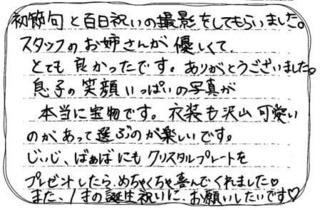 初節句と百日祝いの撮影をしてもらいました。
スタッフのお姉さんが優しくて、
とても良かったです。ありがとうございました。
息子の笑顔いっぱいの写真が
本当に宝物です。衣装も沢山可愛い
のがあって選ぶのが楽しいです。
じぃじ、ばぁばにもクリスタルプレートを
プレゼントしたら、めちゃくちゃ喜んでくれました♡
また、1才の誕生祝いに、お願いしたいです♡